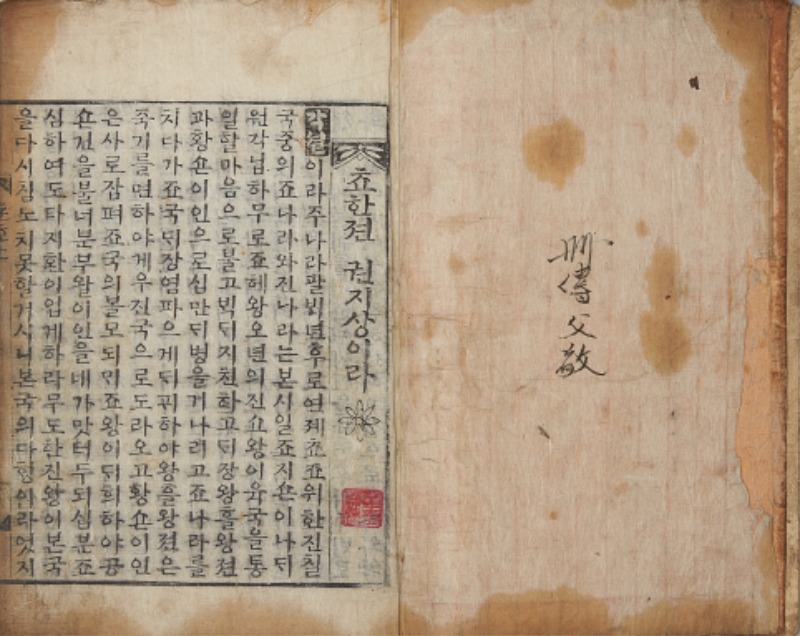 傳父敬
쵸한젼 권지상이라
각셜이라주나라팔ᄇᆡᆨ년후로연졔쵸죠위한진칠
국중의죠나라와진나라는본시일죠지손이나ᄃᆡ
원각님하무로죠혜왕오년의진쇼왕이육국을통
일할마음으로불고ᄇᆡᆨᄃᆡ지친하고ᄃᆡ장왕흘왕젼
과황손이인으로십만ᄃᆡ병을거나려고죠나라를
치다가죠국ᄃᆡ장염파으게ᄃᆡᄑᆡ하야왕흘왕젼은
죽기를면하야게우진국으로도라오고황손이인
은사로잡펴죠국의볼모되ᄆᆡ죠왕이ᄃᆡ희하야공
손건을불너분부왈이인을네가맛터두되심분죠
심하여도타지환이업게하라무도한진왕이본국
을다시침노치못할거시니본국의다행이라엇지